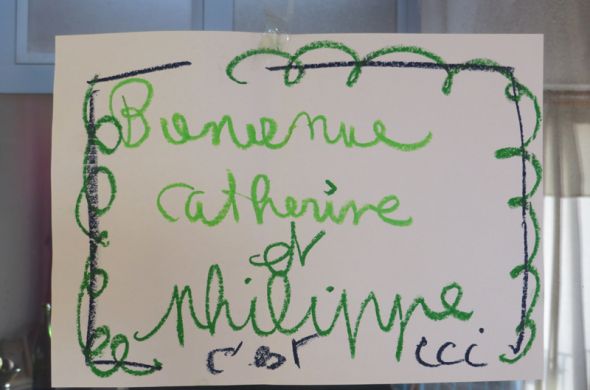 Bienvenue
catherine
et
philippe
c'est ici